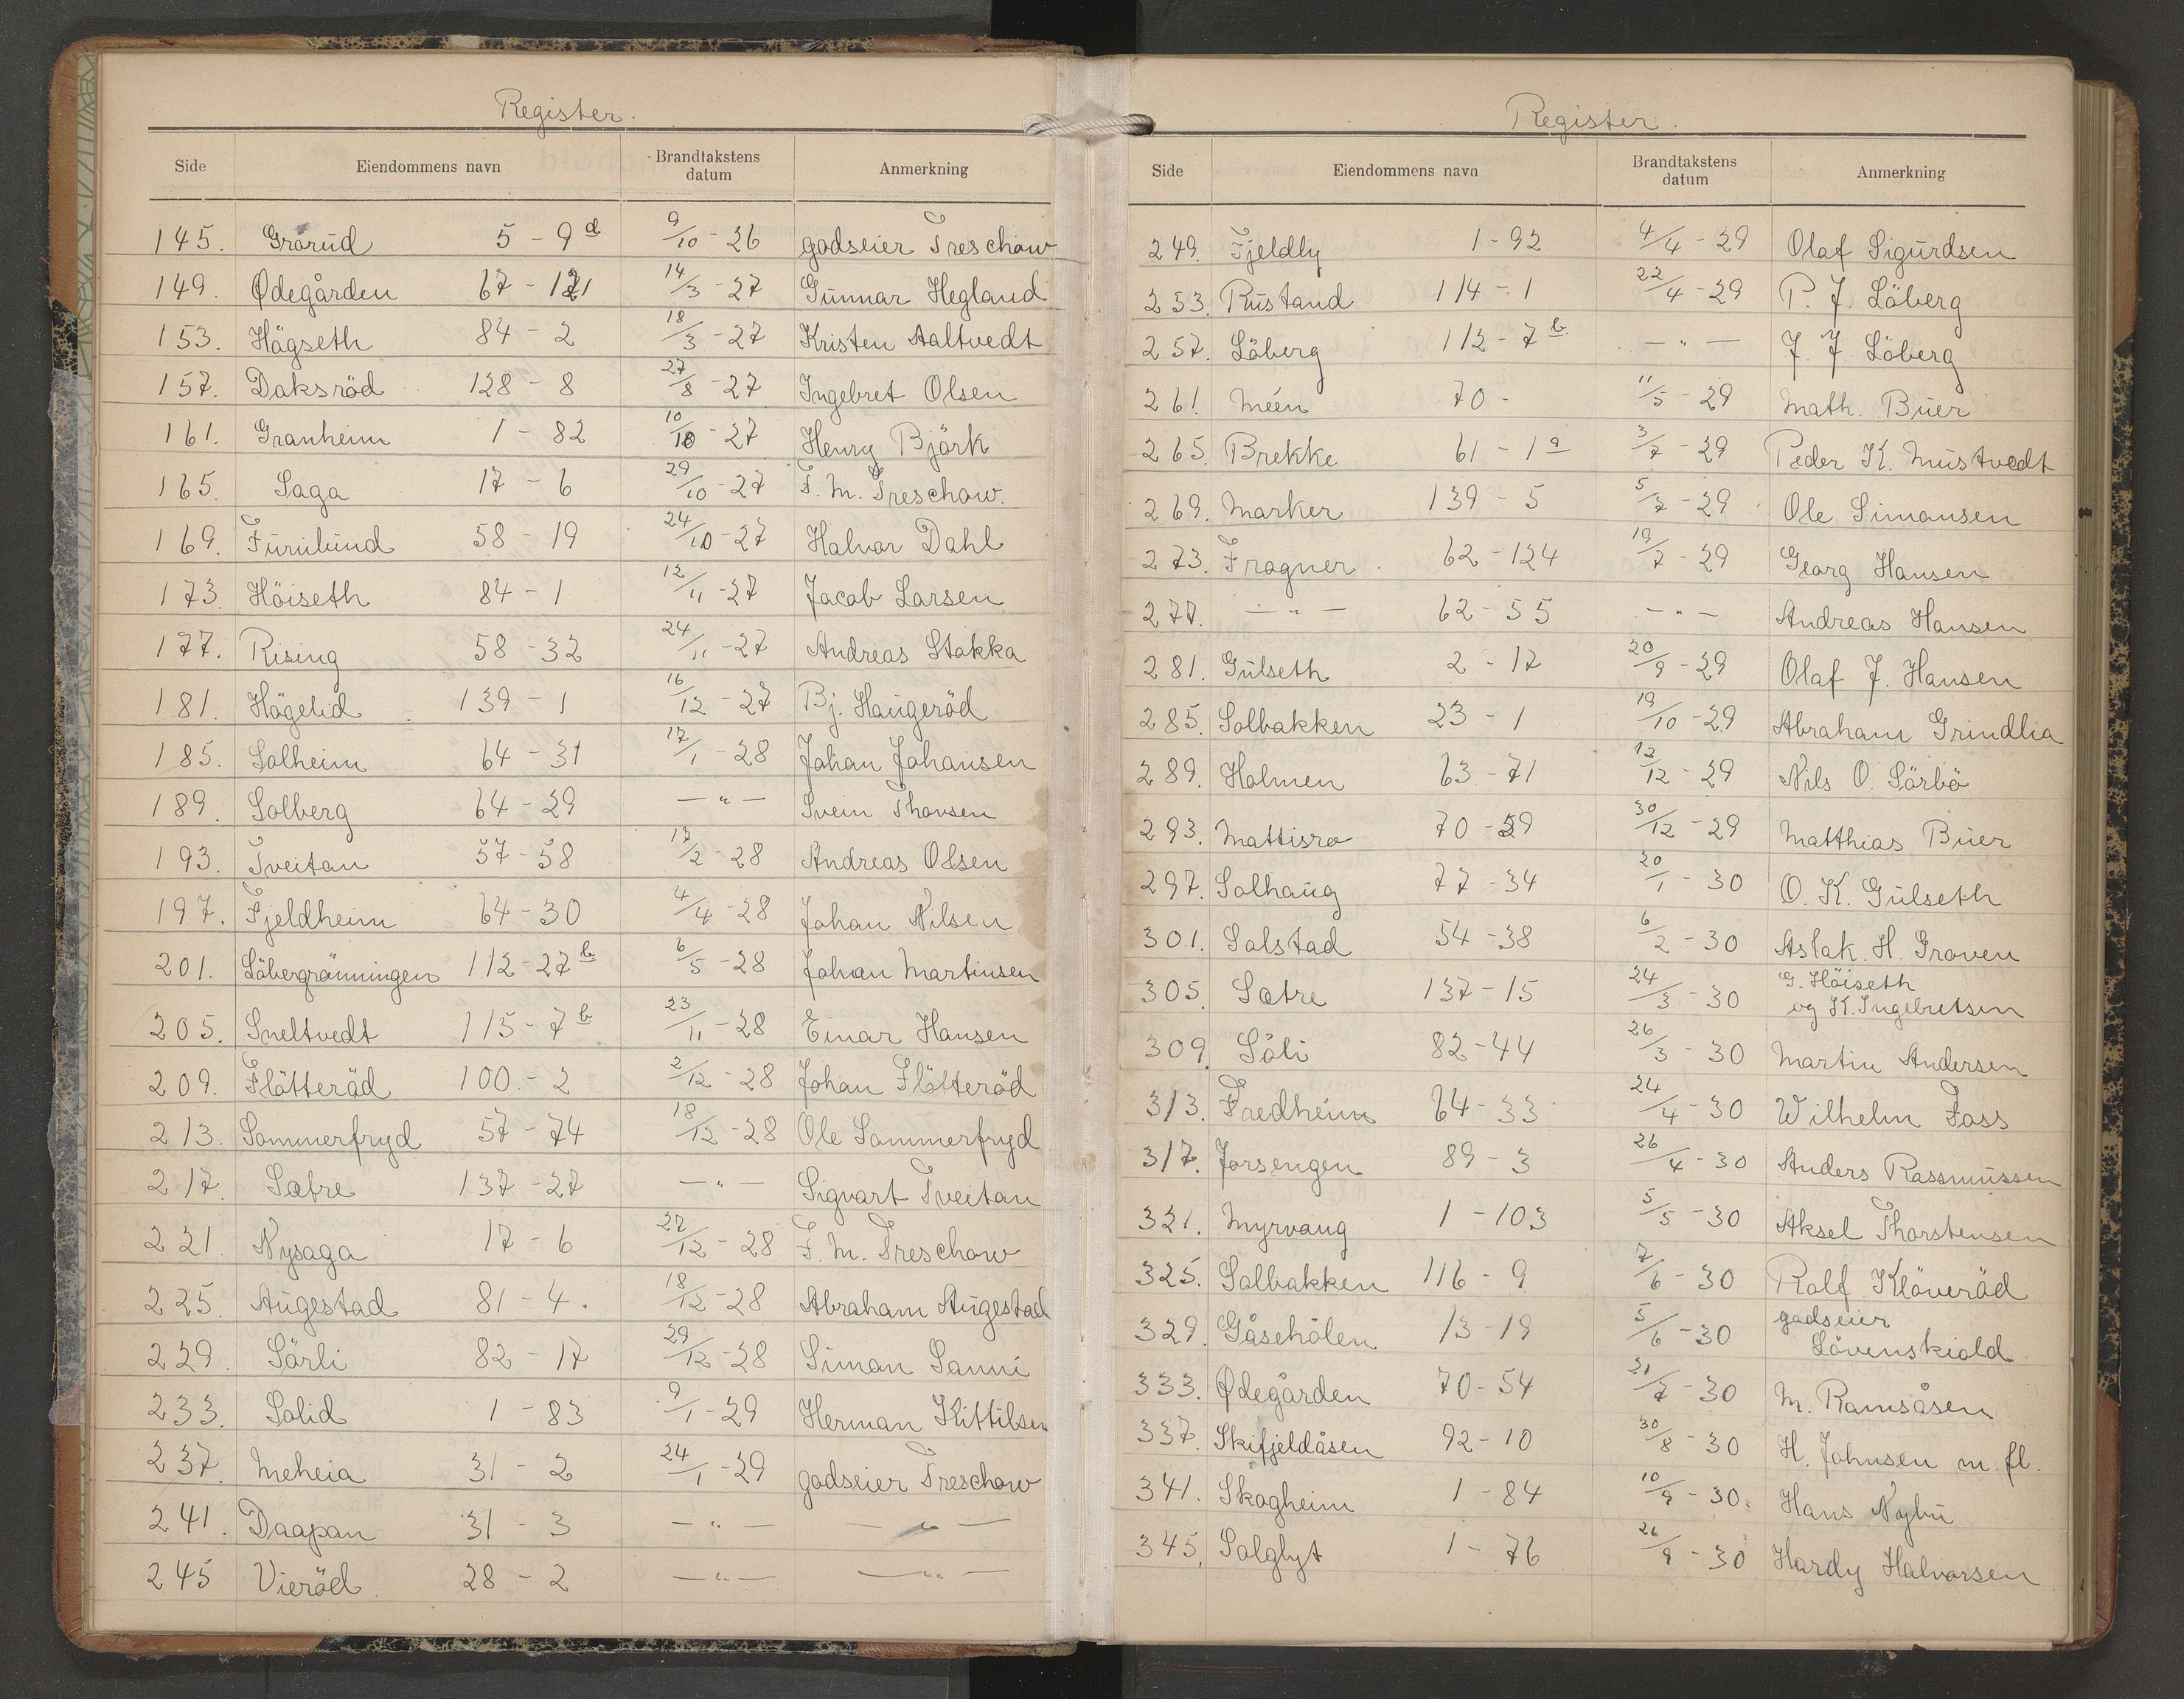 Register.
Side Eiendommens navn Brandtakstens datum Anmerkning
145. Grorud 5 - 9 d 9/10 - 26 godseier Treschow
149. Ødegården 67 - 121 14/3 - 27 Gunnar Hegland
153. Högseth 84 - 2 18/3 - 27 Kristen Aaltvedt
157. Daksröd 128 - 8 27/8 - 27 Ingebret Olsen
161. Granheim 1 - 82 10/10 - 27 Henry Björk
165. Saga 17 - 6 29/10 - 27 F. M. Treschow.
169. Furulund 58 - 19 24/10 - 27 Halvor Dahl
173. Höiseth 84 - 1 12/11 - 27 Jacob Larsen
177. Rising 58 - 32 24/11 - 27 Andreas Stokka
181. Högelid 139 - 1 16/12 - 27 Bj. Haugeröd
185. Solheim 64 - 31 17/1 - 28 Johan Johansen
189. Solberg 64 - 29 — " — Svein Thovsen
193. Tveitan 57 - 58 17/2 - 28 Andreas Olsen
197. Fjeldheim 64 - 30 4/4 - 28 Johan Nilsen
201. Löbergrönningen 112 - 27 b 6/5 - 28 Johan Martinsen
205. Sneltvedt 115 - 7 b 23/11 - 28 Einar Hansen
209. Flötteröd 100. - 2 2/12 - 28 Johan Flötteröd
213. Sommerfryd 57 - 74 18/12 - 28 Ole Sommerfryd
217. Sætre 137 - 27 — " — Sigvart Tveitan
221. Nysaga 17 - 6 27/12 - 28 F. M. Treschow
225. Augestad 81 - 4. 18/12 - 28 Abraham Augestad
229. Sörli 82 - 17 29/12 - 28 Simon Sanni
233. Solid 1 - 83 9/1 - 29 Herman Kittilsen
237. Meheia 31 - 2 24/1 - 29 godseier Treschow
241. Daapan 31 - 3 — " — — " —
245 Vieröd 28 - 2 — " — — " —
Register.
Side Eiendommens navn Brandtakstens datum Anmerkning
249. Fjeldly 1 - 92 4/4 - 29 Olaf Sigurdsen
253. Rustand 114 - 1 22/4 - 29 P. J. Löberg
257. Löberg 112 - 7 b. — " — J. J. Löberg
261. Méén 70 - 11/5 - 29 Math. Buer
265. Brekke 61 - 1 a 3/7 - 29 Peder K. Mustvedt
269. Marker 139 - 5 5/7 - 29 Ole Simonsen
273. Frogner 62 - 124 19/7 - 29 Georg Hansen
277. — " — 62 - 55 — " — Andreas Hansen
281. Gulseth 2 - 17 20/9 - 29 Olaf J. Hansen
285. Solbakken 23 - 1 19/10 - 29 Abraham Grindlia
289. Holmen 63 - 71 12/12 - 29 Nils O. Sörbö
293. Mattisro 70 - 59 30/12 - 29 Matthias Buer
297. Solhaug 77 - 34 20/1 - 30 O. K. Gulseth
301. Solstad 54 - 38 6/2 - 30 Aslak. H. Groven
305. Sætre 137 - 15 24/3 - 30 G. Höiseth
og K. Ingebretsen
309. Söli 82 - 44 26/3 - 30 Martin Andersen
313. Fredheim 64 - 33 24/4 - 30 Wilhelm Foss
317. Jorsengen 89 - 3 26/4 - 30 Anders Rassmussen
321. Myrvang 1 - 103 5/5 - 30 Aksel Thorstensen
325. Solbakken 116 - 9 7/6 - 30 Rolf Klöveröd
329. Gåsehölen 13 - 19 5/6 - 30 godseier
Lövenskiold
333. Ødegården 70 - 54 31/7 - 30 M. Ramsåsen
337. Skifjeldåsen 92 - 10 30/8 - 30 H. Johnsen m. fl.
341. Skogheim 1 - 84 10/9 - 30. Hans Nybu
345. Solglyt 1 - 76 26/9 - 30 Hardy Halvorsen